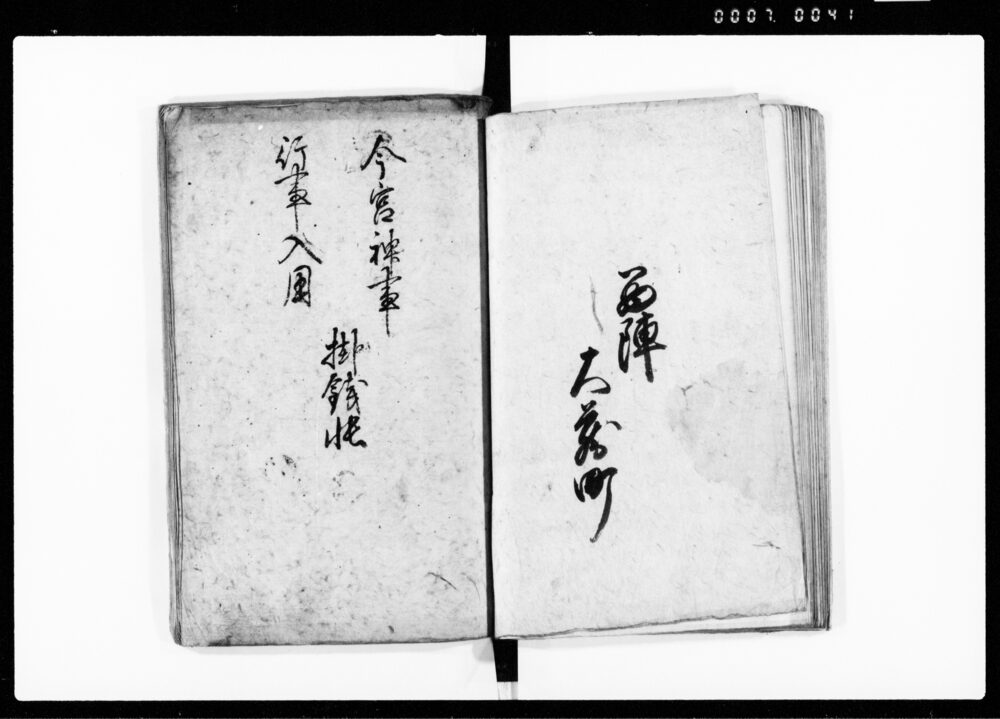 0007.0041
西陣
大蔵町
今宮神事
行事入用
掛銭帳